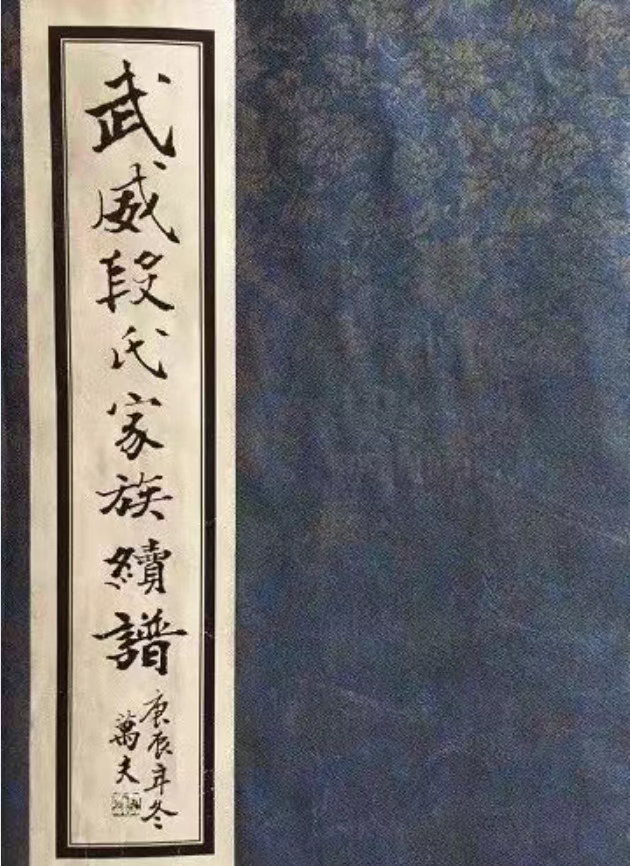 武威段氏家族續譜
庚辰年冬
萬夫